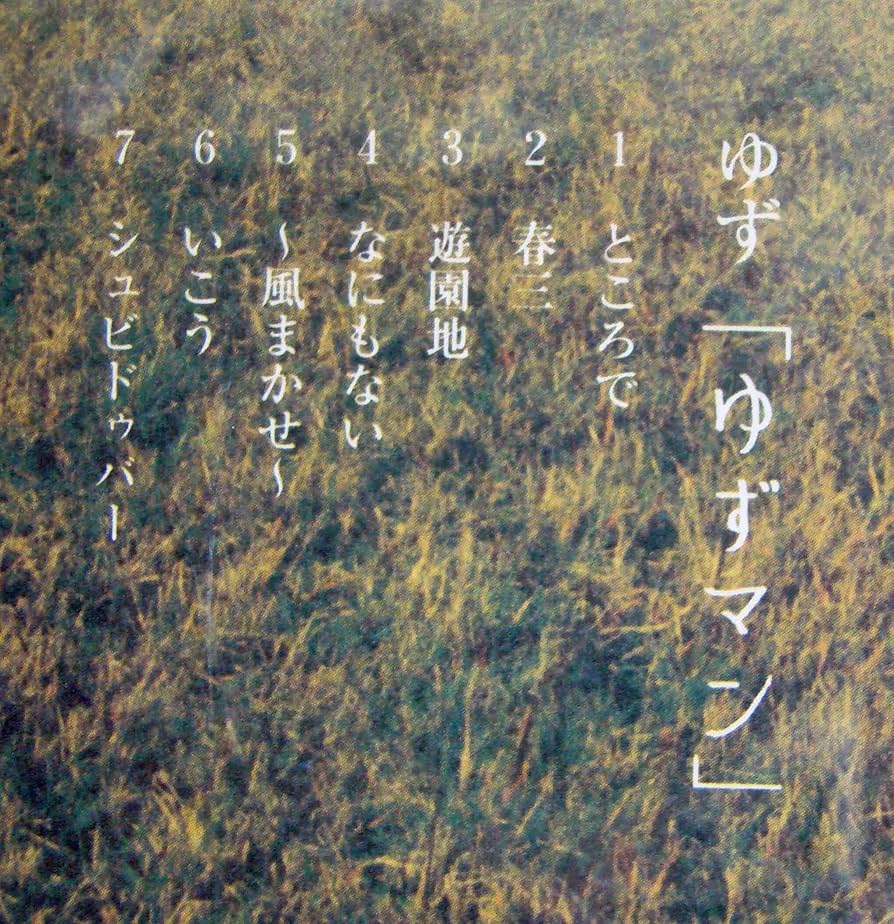 ゆず「ゆずマン」
1 ところで
2 春三
3 遊園地
4 なにもない
5 〜風まかせ〜
6 いこう
7 シュビドゥバー